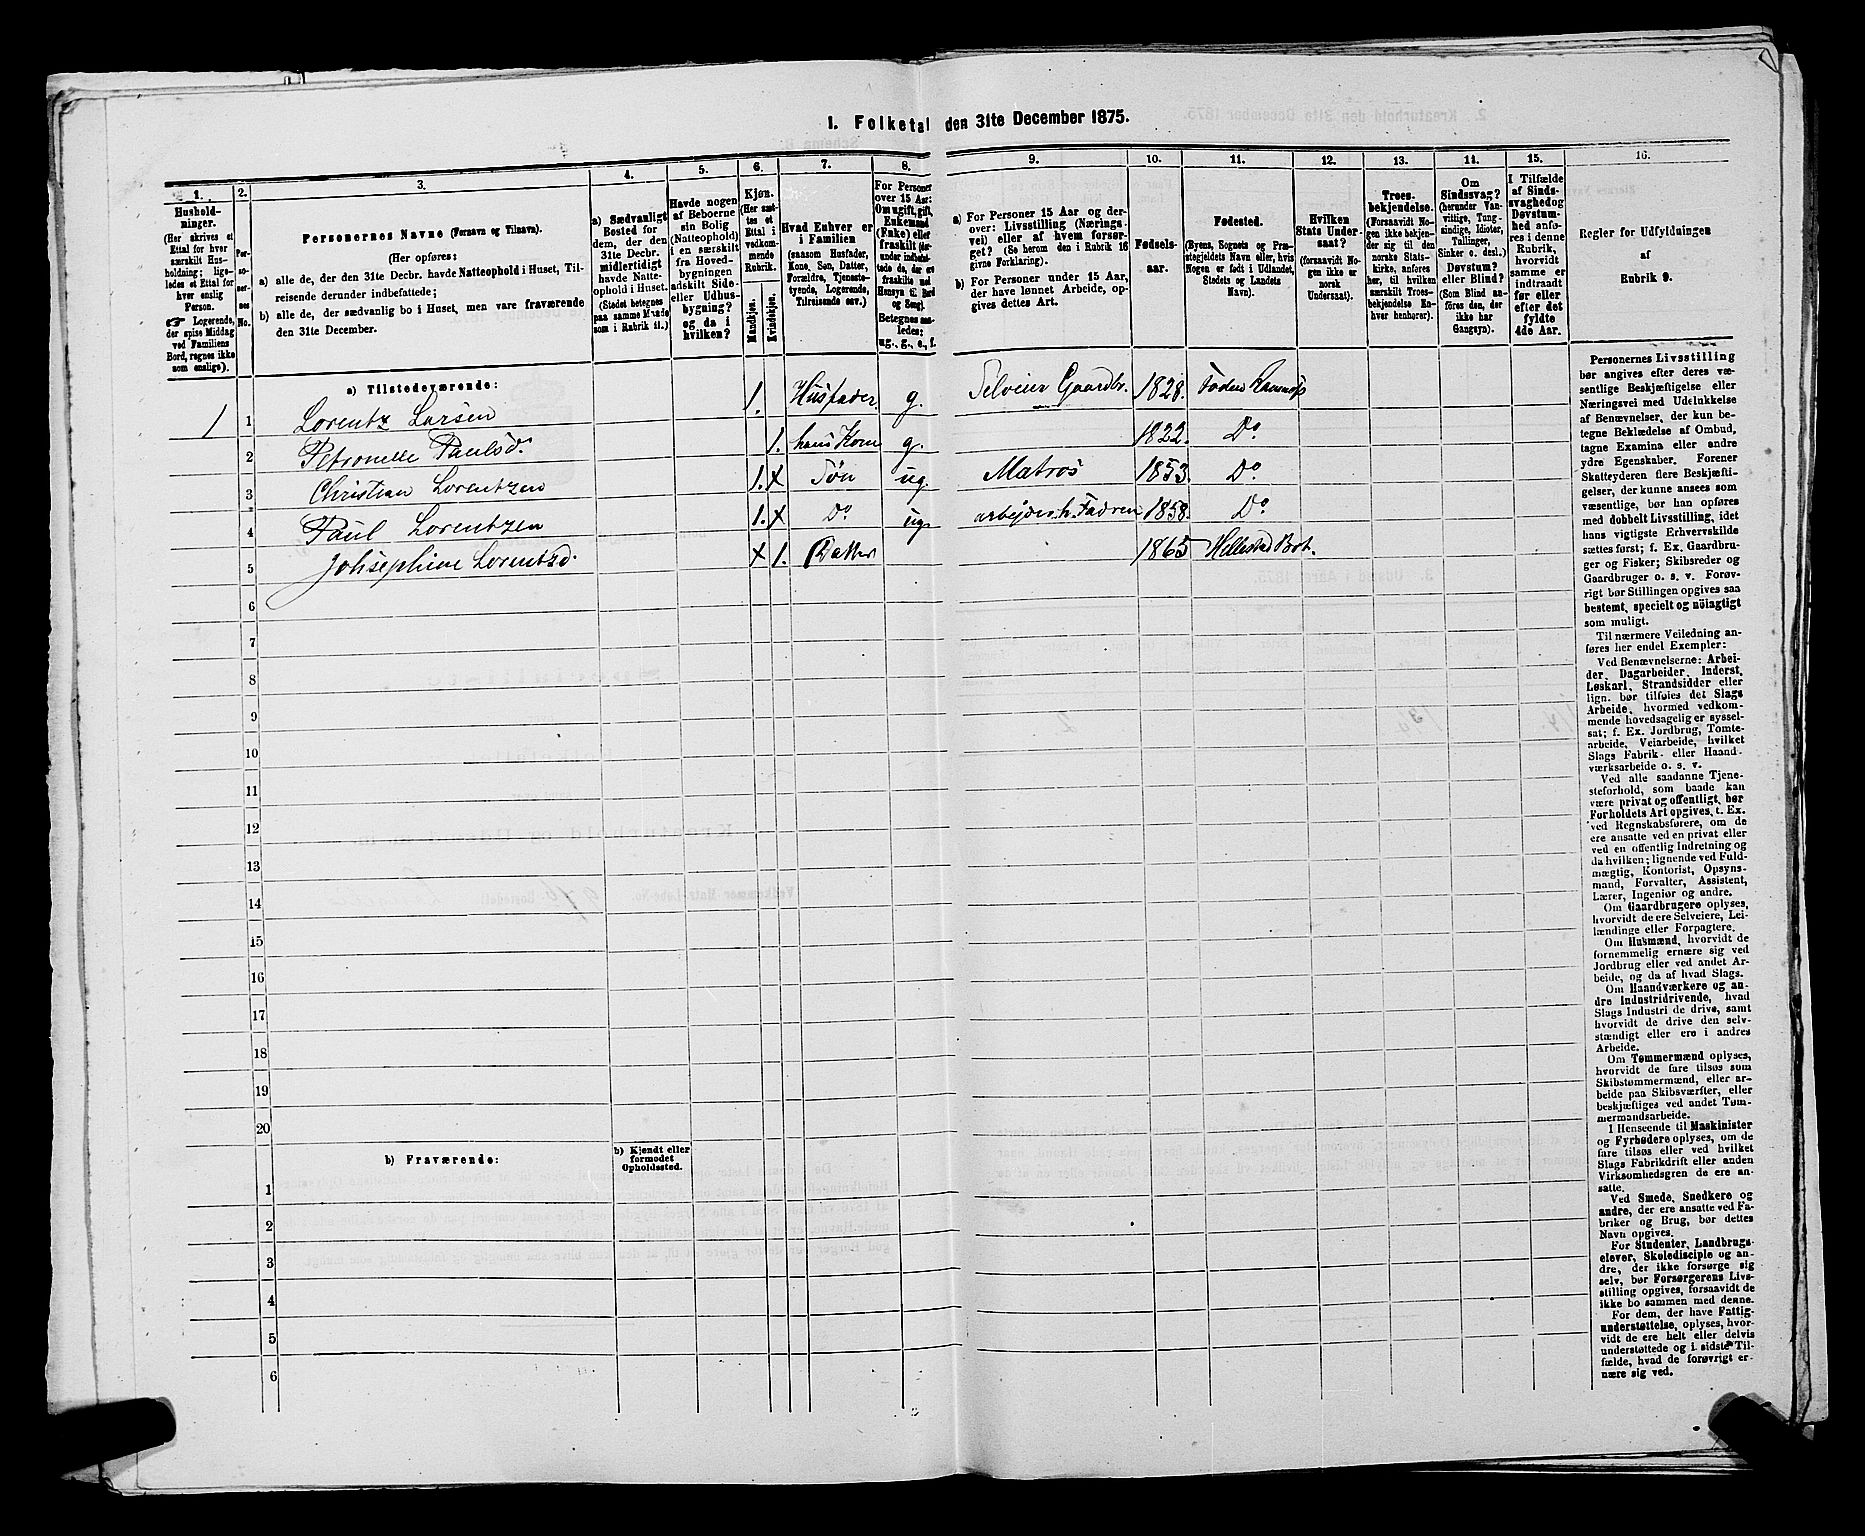 1. Folketal den 31te December 1875.
1. 2. 3. 4. 5. 6. 7. 8. 9. 10. 11. 12. 13. 14. 15. 16.
Hushold-
ninger.
(Her skrives et
Ettal for hver
særskilt Hus-
holdning; lige-
ledes et Ettal for
hver enslig
Person.
☞ Logerende,
der spise Middag
ved Familiens
Bord, regnes ikke
som enslige).
Per-
so-
ner-
nes
No.
Personernes Navne (Fornavn og Tilnavn).
(Her opføres:
a) alle de, der den 31te Decbr. havde Natteophold i Huset, Til-
reisende derunder indbefattede;
b) alle de, der sædvanlig bo i Huset, men vare fraværende
den 31te December.
a) Sædvanligt
Bosted for
dem, der den
31te Decbr.
midlertidigt
havde Natte-
ophold i Huset.
(Stedet betegnes
paa samme Maade
som i Rubrik 11.)
Havde nogen
af Beboerne
sin Bolig
(Natteophold)
i en særskilt
fra Hoved-
bygningen
adskilt Side-
eller Udhus-
bygning?
og da i
hvilken?
Kjøn.
(Her sæt-
tes et
Ettal i
vedkom-
mende
Rubrik.
Mandkjøn.
Kvindekjøn.
Hvad Enhver er
i Familien
(saasom Husfader,
Kone, Søn, Datter,
Forældre, Tjeneste-
tyende, Logerende,
Tilreisende osv.)
For Personer
over 15 Aar:
Om ugift, gift,
Enkemand
(Enke) eller
fraskilt
Betegnes saa-
ledes:
ug., g., e., f.
a) For Personer 15 Aar og der-
over: Livsstilling (Nærings-
vei) eller af hvem forsør-
get? (Se herom den i Rubrik 16
givne Forklaring).
b) For Personer under 15 Aar,
der have lønnet Arbeide, op-
gives dettes Art.
Fødsels-
aar.
Fødested.
(Byens, Sognets og Præ-
stegjeldets Navn eller, hvis
Nogen er født i Udlandet,
Stedets og Landets
Navn).
Hvilken
Stats Under-
saat?
(forsaavidt No-
gen ikke er
norsk
Undersaat).
Troes-
bekjendelse.
(Forsaavidt No-
gen ikke bekjen-
der sig til den
norske Stats-
kirke, anføres
her, til hvilken
særskilt Troes-
bekjendelse En-
hver henhører).
Om
Sindssvag?
(herunder Van-
vittige, Tung-
sindige, Idioter,
Tullinger,
Sinker o. desl.)
Døvstum?
eller Blind?
(Som Blind an-
føres den, der
ikke har
Gangsyn).
I Tilfælde
af Sinds-
svaghed og
Døvstum-
hed anfø-
res i denne
Rubrik,
hvorvidt
samme er
indtraadt
før eller
efter det
fyldte
4de Aar.
Regler for Udfyldningen
af
Rubrik 9.
a) Tilstedeværende:
1 1 Lorentz Larsen 1. Husfader g. Selveier Gaardbr. 1828.
2 Petronelle Paulsd. 1. hans Kone g. 1822. Do
3 Christian Lorentzen 1. x Søn ug. Matros 1853. Do
4 Paul Lorentzen 1. x Do ug. arbejder h. Fadren 1858. Do
5 Johsephine Lorentsd. x 1. Datter 1865
6
7
8
9
10
11
12
13
14
15
16
17
18
19
20
b) Fraværende:
b) Kjendt eller
formodet
Opholdssted.
1
2
3
4
5
6
Personernes Livsstilling
bør angives efter deres væ-
sentlige Beskjæftigelse eller
Næringsvei med Udelukkelse
af Benævnelser, der kun be-
tegne Beklædelse af Ombud,
tagne Examina eller andre
ydre Egenskaber. Forener
Skatteyderen flere Beskjæfti-
gelser, der kunne ansees som
væsentlige, bør han opføres
med dobbelt Livsstilling, idet
hans vigtigste Erhvervskilde
sættes først; f. Ex. Gaardbru-
ger og Fisker; Skibsreder og
Gaardbruger o. s. v. Forøv-
rigt bør Stillingen opgives saa
bestemt, specielt og nöiagtigt
som muligt.
Til nærmere Veiledning an-
føres her endel Exempler:
Ved Benævnelserne: Arbei-
der, Dagarbeider, Inderst,
Løskarl, Strandsidder eller
lign. bør tilføies det Slags
Arbeide, hvormed vedkom-
mende hovedsagelig er syssel-
sat; f. Ex. Jordbrug, Tomte-
arbeide, Veiarbeide, hvilket
Slags Fabrik- eller Haand-
værksarbeide o. s. v.
Ved alle saadanne Tjene-
steforhold, som baade kan
være privat og offentligt, bør
Forholdets Art opgives, t. Ex.
ved Regnskabsførere, om de
ere ansatte ved en privat eller
ved en offentlig Indretning og
da hvilken; lignende ved Fuld-
mægtig, Kontorist, Opsyns-
mand, Forvalter, Assistent,
Lærer, Ingeniør og andre.
Om Gaardbrugere oplyses,
hvorvidt de ere Selveiere, Lei-
lændinge eller Forpagtere.
Om Husmænd, hvorvidt de
fornemmelig ernære sig ved
Jordbrug eller ved andet Ar-
beide, og da af hvad Slags.
Om Haandværkere og an-
dre Industridrivende, hvad
Slags Industri de drive, samt
hvorvidt de drive den selv-
stændigt eller ere i andres
Arbeide.
Om Tømmermænd oplyses,
hvorvidt de fare tilsøs som
Skibstømmermænd, eller ar-
beide paa Skibsværfter, eller
beskjæftiges ved andet Tøm-
mermandsarbeide.
I Henseende til Maskinister
og Fyrbødere oplyses, om de
fare tilsøs eller ved hvilket
Slags Fabrikdrift eller anden
Virksomhedsgren de ere an-
satte.
Ved Smede, Snedkere og
andre, der ere ansatte ved Fa-
briker og Brug, bør dettes
Navn opgives.
For Studenter, Landbrugs-
elever, Skoledisciple og an-
dre, der ikke forsørge sig
selv, bør Forsørgerens Livs-
stilling opgives, forsaavidt de
ikke bo sammen med denne.
For dem, der have Fattig-
understøttelse, oplyses, hvor-
vidt de ere helt eller delvis
understøttede og i sidste Til-
fælde, hvad de forøvrigt er-
nære sig ved.